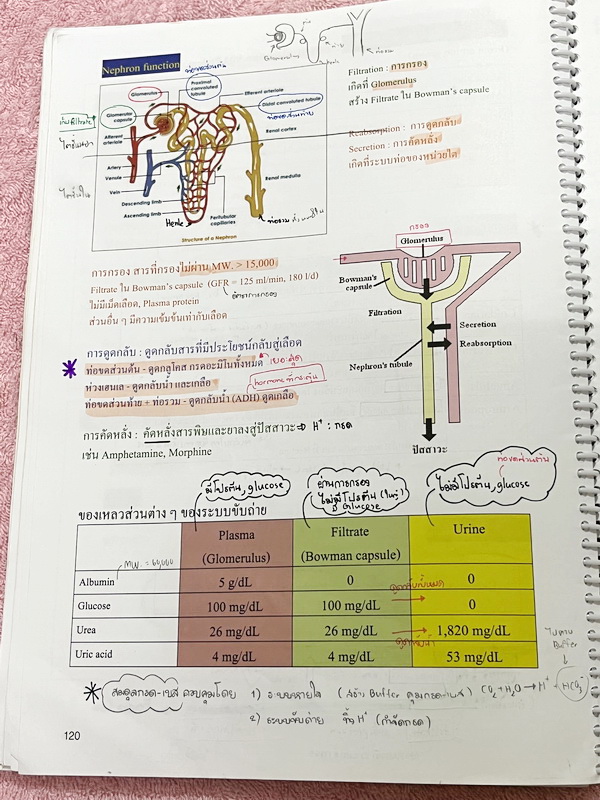 Glomerulus
ท่อรวม
Nephron function
ท่อขดส่วนต้น
Filtration : การกรอง
เกิดที่ Glomerulus
สร้าง Filtrate ใน Bowman's capsule
Reabsorption : การดูดกลับ
Secretion : การคัดหลั่ง
เกิดที่ระบบท่อของหน่วยไต
Glomerulus
Proximal convoluted tubule
Efferent arteriole
Distal convoluted tubule
ท่อขดส่วนท้าย
Glomerular capsule
Afferent arteriole
Renal cortex
Artery
Venule
Vein
Renal medulla
Descending limb
Ascending limb
Henle
Peritubular capillaries
ท่อรวม
Structure of a Nephron
การกรอง สารที่กรองไม่ผ่าน MW. > 15,000
Filtrate ใน Bowman's capsule (GFR = 125 ml/min, 180 l/d)
อัตราการกรอง
ไม่มีเม็ดเลือด, Plasma protein
ส่วนอื่น ๆ มีความเข้มข้นเท่ากับเลือด
การดูดกลับ : ดูดกลับสารที่มีประโยชน์กลับสู่เลือด
ท่อขดส่วนต้น - ดูดกลูโคส กรดอะมิโนทั้งหมด เยอะสุด
ห่วงเฮนเล - ดูดกลับน้ำ และเกลือ
ท่อขดส่วนท้าย + ท่อรวม - ดูดกลับน้ำ (ADH) ดูดเกลือ
การคัดหลั่ง : คัดหลั่งสารพิษและยาลงสู่ปัสสาวะ ⇒ H⁺ : กรด
เช่น Amphetamine, Morphine
กรอง
Glomerulus
Bowman's capsule
Filtration
Secretion
Reabsorption
Nephron's tubule
ปัสสาวะ
มีโปรตีน, glucose
ผ่านการกรอง
ไม่มีโปรตีน (ใหญ่)
มี Glucose
ท่อขดส่วนต้น
ไม่มีโปรตีน, glucose
ของเหลวส่วนต่าง ๆ ของระบบขับถ่าย
Plasma (Glomerulus) Filtrate (Bowman capsule) Urine
Albumin 5 g/dL 0 0
Glucose 100 mg/dL 100 mg/dL ดูดกลับหมด 0
Urea 26 mg/dL 26 mg/dL 1,820 mg/dL
Uric acid 4 mg/dL 4 mg/dL 53 mg/dL
Buffer
สมดุลกรด-เบส ควบคุมโดย 1) ระบบหายใจ CO₂ + H₂O → H⁺ + HCO₃⁻
2) ระบบขับถ่าย ทิ้ง H⁺ (กำจัดกรด)
120